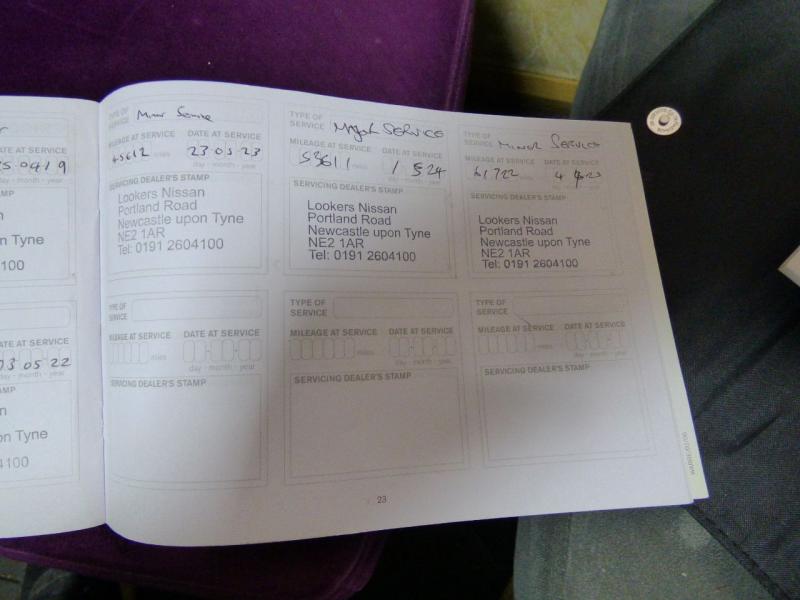 25 04 19
day - month - year
on Tyne
100
TYPE OF SERVICE Minor Service
MILEAGE AT SERVICE DATE AT SERVICE
45612 miles 23 05 23
day - month - year
SERVICING DEALER'S STAMP
Lookers Nissan
Portland Road
Newcastle upon Tyne
NE2 1AR
Tel: 0191 2604100
TYPE OF SERVICE Major SERVICE
MILEAGE AT SERVICE DATE AT SERVICE
53611 miles 1 5 24
day - month - year
SERVICING DEALER'S STAMP
Lookers Nissan
Portland Road
Newcastle upon Tyne
NE2 1AR
Tel: 0191 2604100
TYPE OF SERVICE MINOR SERVICE
MILEAGE AT SERVICE DATE AT SERVICE
61722 miles
SERVICING DEALER'S STAMP
Lookers Nissan
Portland Road
Newcastle upon Tyne
NE2 1AR
Tel: 0191 2604100
DATE AT SERVICE
03 05 22
day - month - year
on Tyne
4100
TYPE OF SERVICE
MILEAGE AT SERVICE DATE AT SERVICE
miles
day - month - year
SERVICING DEALER'S STAMP
TYPE OF SERVICE
MILEAGE AT SERVICE DATE AT SERVICE
miles
day - month - year
SERVICING DEALER'S STAMP
TYPE OF SERVICE
MILEAGE AT SERVICE DATE AT SERVICE
miles
day - month - year
SERVICING DEALER'S STAMP
23